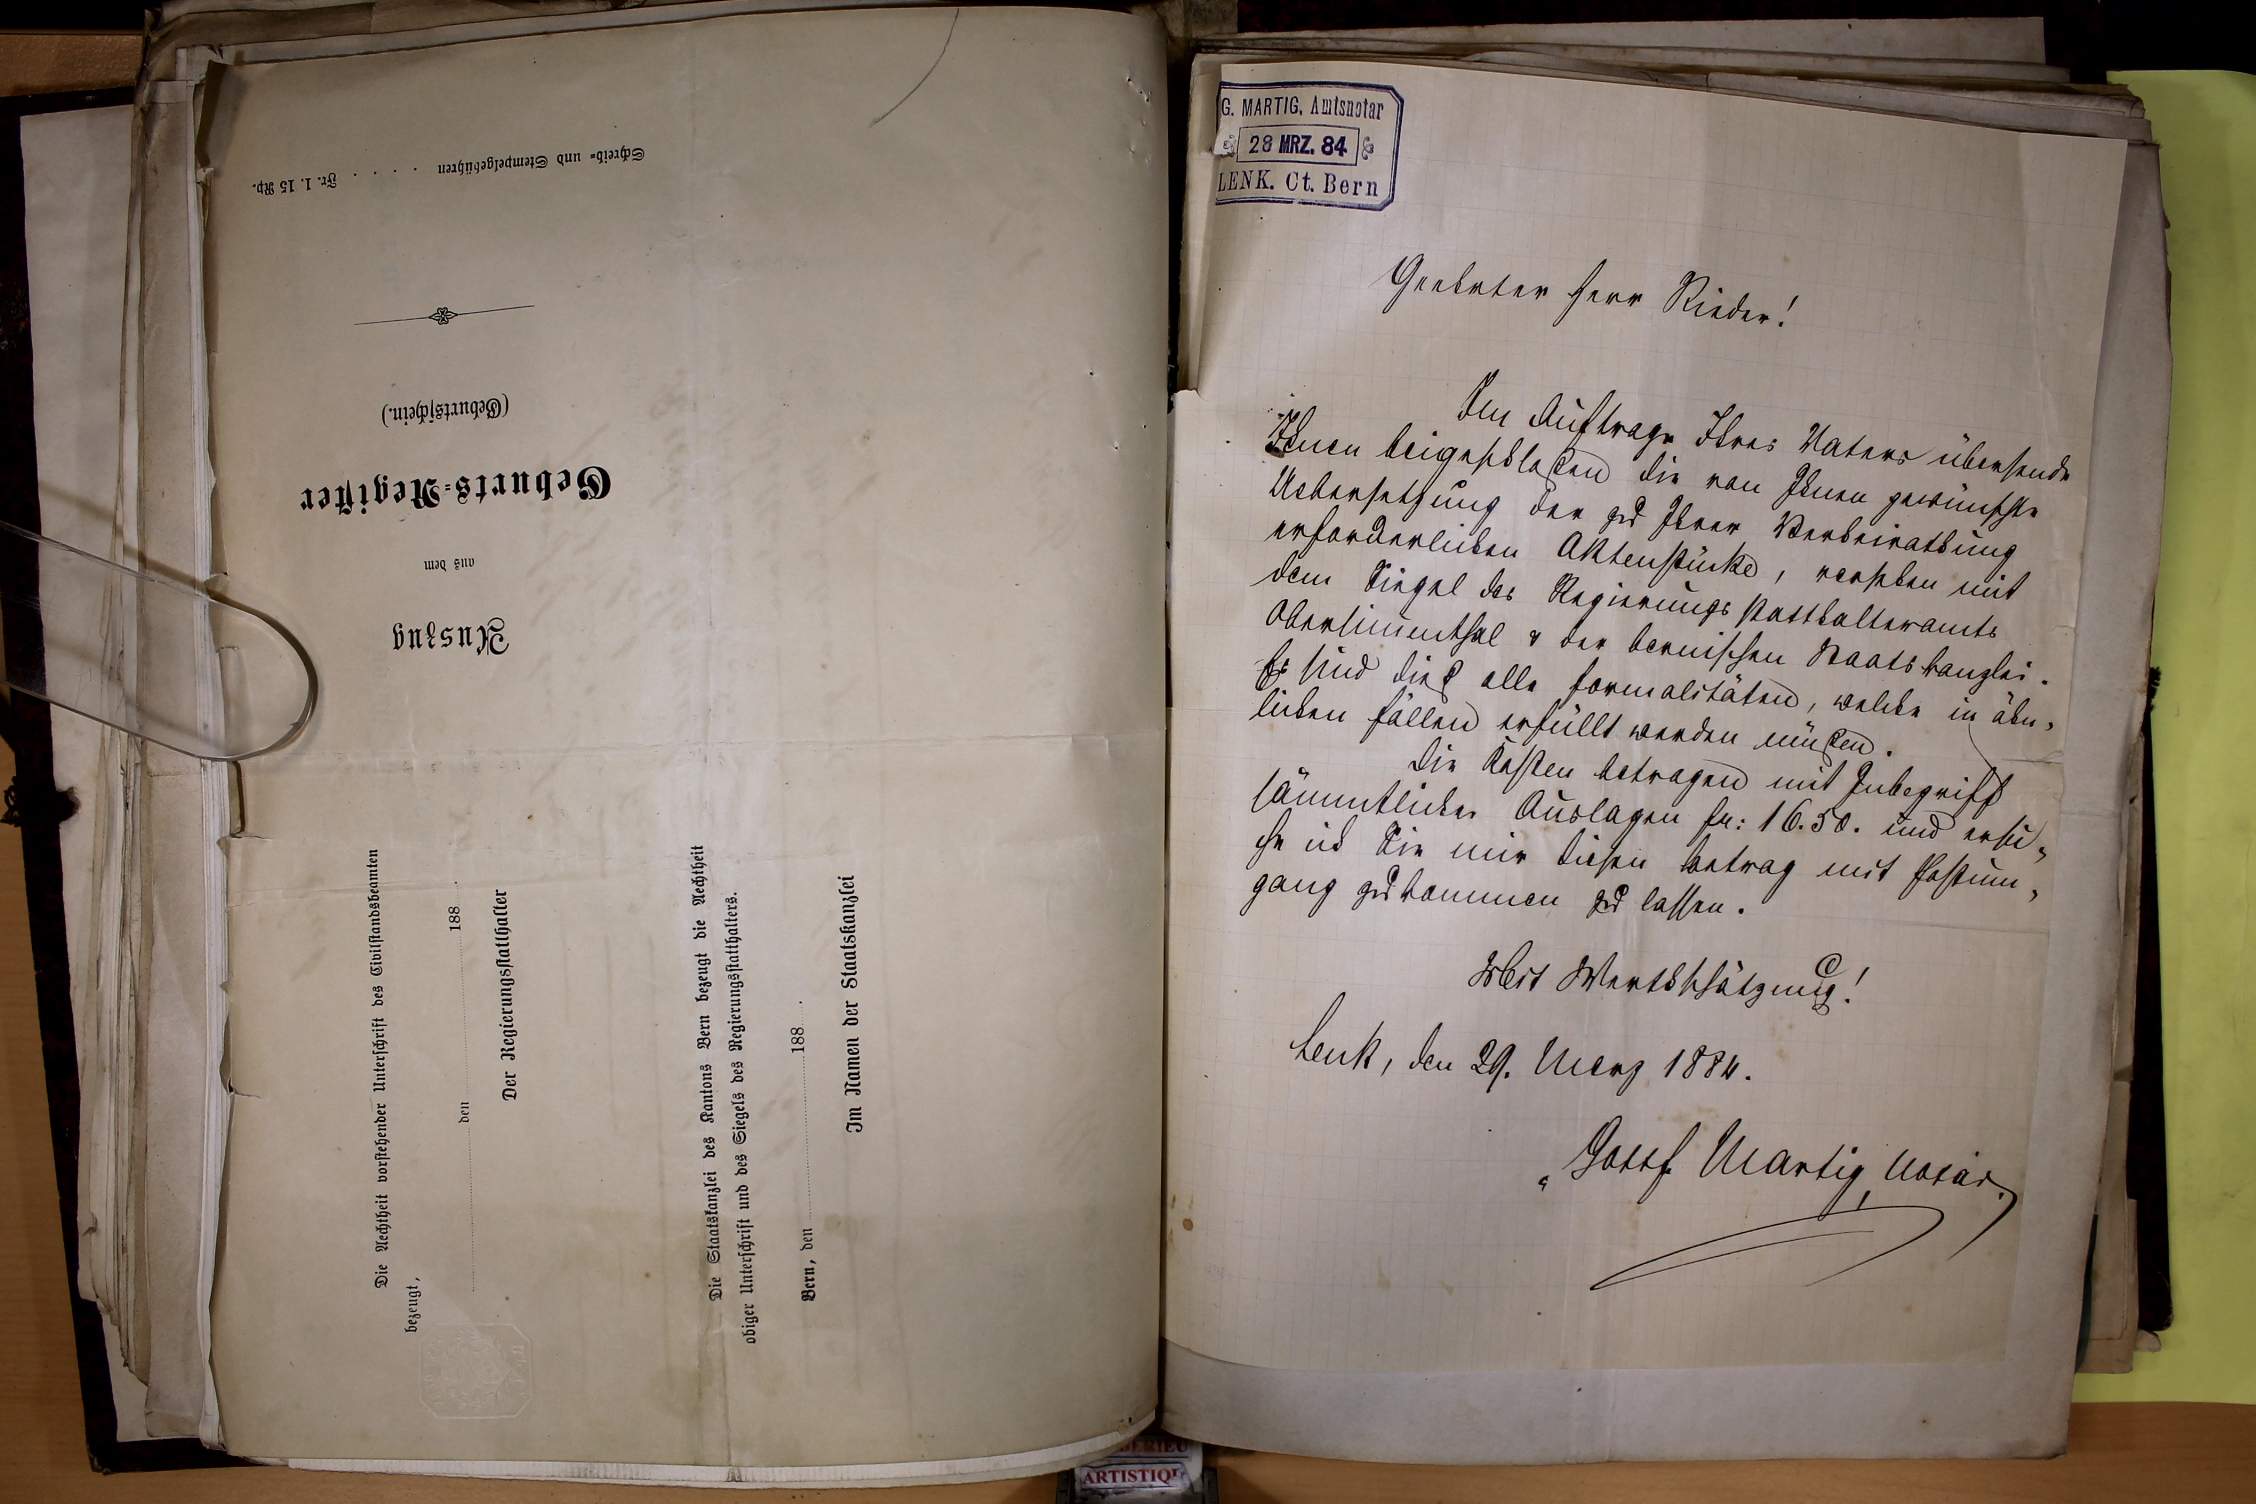 Schreib- und Stempelgebühren . . . . Fr. 1. 15 Rp.
Auszug
aus dem
Geburts-Register
(Geburtsschein.)
Die Aechtheit vorstehender Unterschrift des Civilstandsbeamten
bezeugt,
den 188 .
Der Regierungsstatthalter
Die Staatskanzlei des Kantons Bern bezeugt die Aechtheit
obiger Unterschrift und des Siegels des Regierungsstatthalters.
Bern, den 188 .
Im Namen der Staatskanzlei
G. MARTIG, Amtsnotar
28 MRZ. 84
LENK. Ct. Bern
Geehrter Herr Rieder!
Im Auftrage Ihres Vaters übersende
Ihnen beigeschloßen die von Ihnen gewünschte
Uebersetzung der zu Ihrer Verheirathung
erforderlichen Aktenstücke, versehen mit
dem Siegel des Regierungsstatthalteramts
Obersimmenthal & der bernischen Staatskanzlei.
Es sind dieß alle Formalitäten, welche in ähn-
lichen Fällen erfüllt werden müßen.
Die Kosten betragen mit Inbegriff
sämmtlicher Auslagen Fr: 16.50. und ersu-
che ich Sie mir diesen Betrag mit Postum-
gang zukommen zu lassen.
Mit Werthschätzung!
Lenk, den 29. Merz 1884.
Gottf. Martig, Notar.
ARTISTIQU